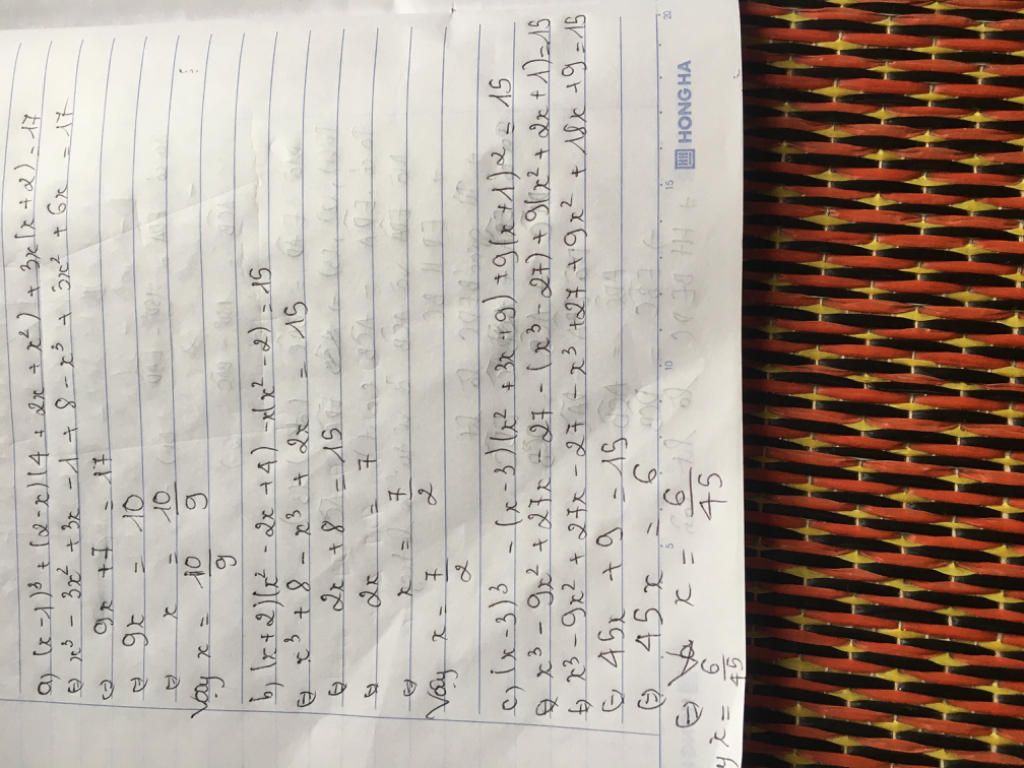 a) (x-1)³ + (2-x)(4 + 2x + x²) + 3x(x+2) = 17
⇔ x³ - 3x² + 3x - 1 + 8 - x³ + 3x² + 6x = 17
⇔ 9x + 7 = 17
⇔ 9x = 10
⇔ x = 10/9
Vậy x = 10/9
b) (x+2)(x² - 2x + 4) - x(x² - 2) = 15
⇔ x³ + 8 - x³ + 2x = 15
⇔ 2x + 8 = 15
⇔ 2x = 7
⇔ x = 7/2
Vậy x = 7/2
c) (x-3)³ - (x-3)(x² + 3x + 9) + 9(x+1)² = 15
⇔ x³ - 9x² + 27x - 27 - (x³ - 27) + 9(x² + 2x + 1) = 15
⇔ x³ - 9x² + 27x - 27 - x³ + 27 + 9x² + 18x + 9 = 15
⇔ 45x + 9 = 15
⇔ 45x = 6
⇔ x = 6/45
y x = 6/45
HONG HA
5 10 15 20